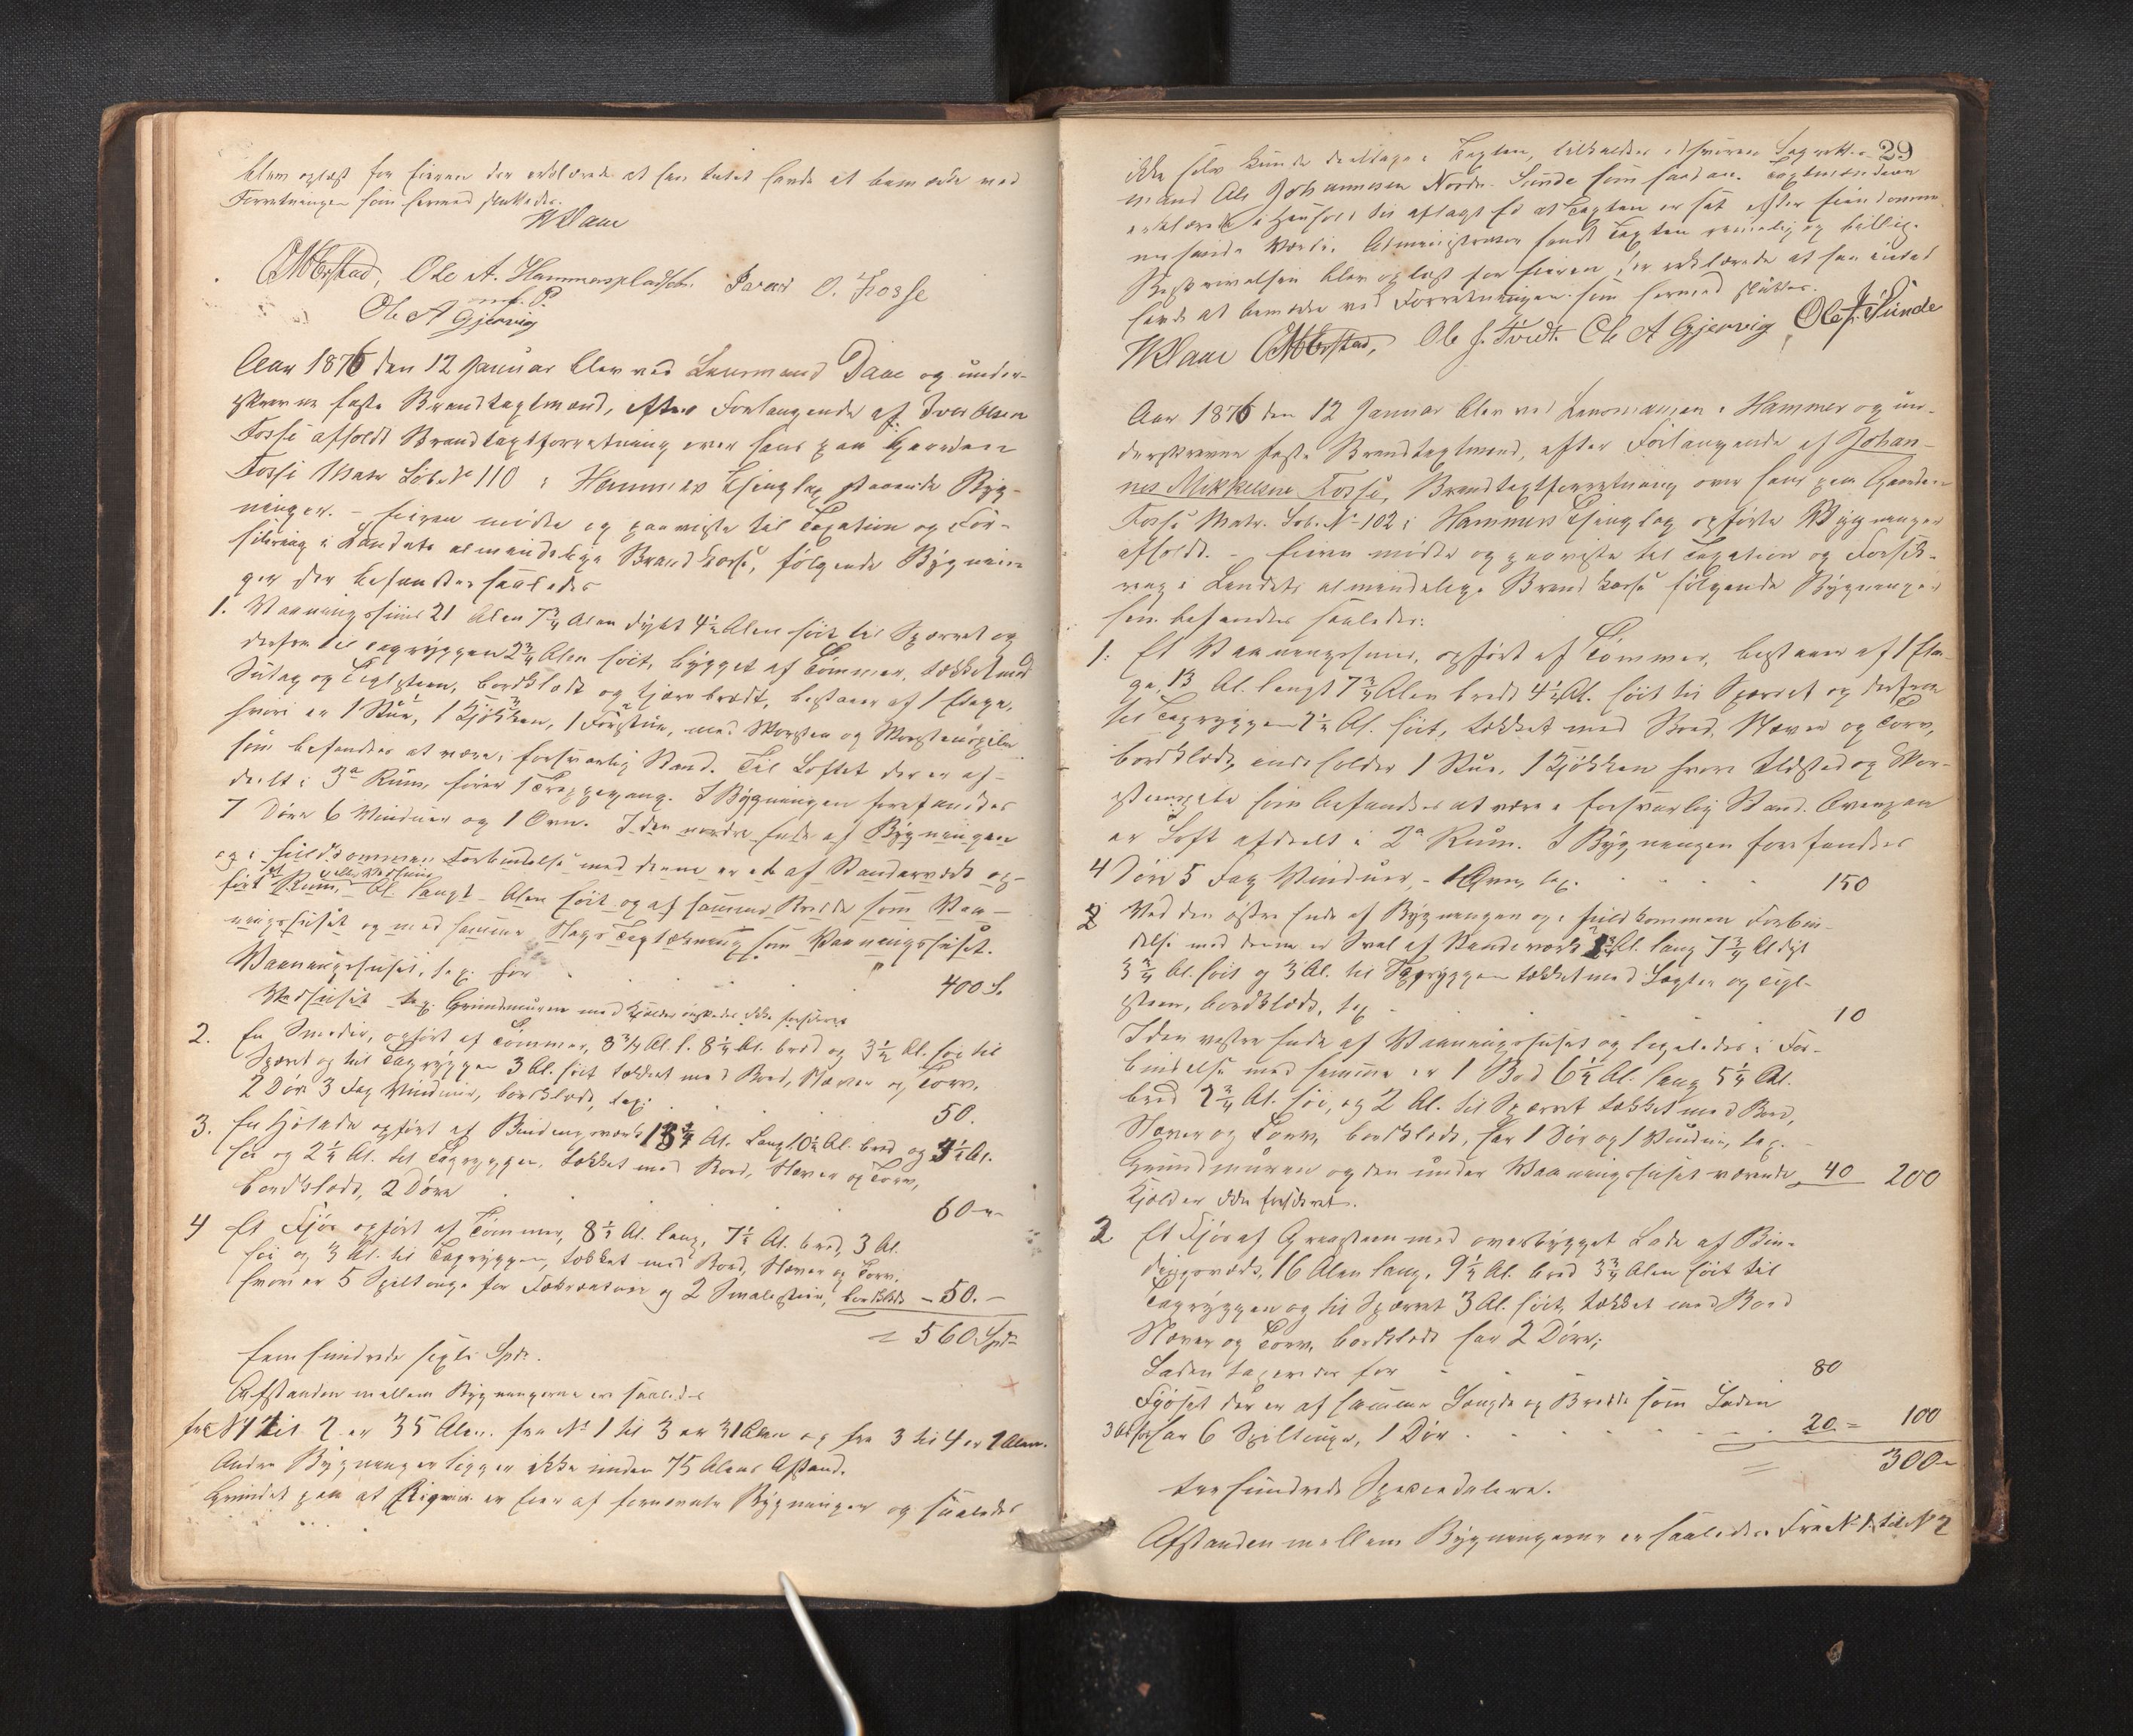 blev oplæst for Eieren der erklærede at han intet havde at bemærke ved
Forretningen som hermed sluttedes.
W Daae
Ole A. Hammersplads O. Fosse
m. f. P.
Ole A Gjervig
Aar 1876 den 12 Januar blev ved Lensmand Daae og under-
skrevne faste Brandtaxtmænd, efter Forlangende af Iver Olsen
Fosse afholdt Brandtaxtforretning over hans paa Gaarden
Fosse Matr Løbe No 110 i Hammers Thinglag staaende Byg-
ninger. – Eieren mødte og paaviste til Taxation og For-
sikring i Landets almindelige Brandkasse, følgende Bygnin-
ger der befandtes saaledes
1. Vaaningshuus 21 Alen 7 3/4 Alen dybt 4 1/2 Alen høit til Sparret og
derfra til Tagryggen 2 3/4 Alen høit, bygget af Tømmer, tækket med
Sutag og Teglsteen, bordklædt og tjærebredt, bestaaer af 1 Etage,
hvori er 1 Stue, 1 Kjøkken, 1 Forstue, med Skorsten og Skorstenspibe
som befandtes at være i forsvarlig Stand. Til Loftet der er af-
deelt i 3de Rum, fører 1 Trappegang. I Bygningen forefandtes
7 Døre 6 Vinduer og 1 Ovn. I den nordre Ende af Bygningen
og i fuldkommen Forbindelse med denne er et af Standerværk op-
ført Rum, Al. langt – Alen høit og af samme Bredde som Vaa-
ningshuset og med samme Slags Tagtækning som Vaaningshuset.
Vaaningshuset, tax. for 400 S.
Vedhuset tax. Grundmuren med Kjælder ønskedes ikke forsikret
2. En Smedie, opført af Tømmer, 8 3/4 Al. l. 8 1/4 Al. bred og 3 1/2 Al. høi til
Sparret og til Tagryggen 3 Al. høit tækket med Bord, Næver og Torv,
2 Døre 3 Fag Vinduer, bordklædt, tax. 50.
3. En Hølade opført af Bindingsværk 13 3/4 Al. lang 10 1/2 Al. bred og 3 1/2 Al.
høi og 2 1/4 Al. til Tagryggen, tækket med Bord, Næver og Torv,
bordklædt, 2 Døre 60 –
4 Et Fjøs opført af Tømmer, 8 1/2 Al. lang, 7 1/2 Al. bred, 3 Al.
høi og 3 Al. til Tagryggen, tækket med Bord, Næver og Torv,
hvori er 5 Spiltouge for og 2 bordklædt – 50. –
= 560 Spd
Fem hundrede sexti Spd.
Afstanden mellem Bygningerne er saaledes
fra No 1 til 2 er 35 Alen. fra No 1 til 3 er 31 Alen og fra 3 til 4 er 7 Alen.
Andre Bygninger ligger ikke inden 75 Alens Afstand.
Grundet paa at er Eier af fornævnte Bygninger og saaledes
29
ikke selv kunde deeltage i Taxten, tilkaldtes edsvoren Lagrettes-
mand Ole Johannesen Nordre Sunde som saadan. Taxtmændene
erklærede i Henhold til aflagt Ed at Taxten er sat efter Eiendomme-
nes sande Værdi. Administrator fandt Taxten rimelig og billig.
Beskrivelsen blev oplæst for Eieren, der erklærede at han intet
havde at bemærke ved Forretningen som hermed sluttes.
W Daae Ole J. Tvedt. Ole A Gjervig Ole J. Sunde
Aar 1876 den 12 Januar blev ved Lensmanden i Hammer og un-
derskrevne faste Brandtaxtmænd, efter Forlangende af Johan-
nes Mikkelsen Fosse, Brandtaxtforretning over hans paa Gaarden
Fosse Matr. Løb. No 102 i Hammers Thinglag opførte Bygninger
afholdt. – Eieren mødte og paaviste til Taxation og Forsik-
ring i Landets almindelige Brandkasse følgende Bygninger
som befandtes saaledes:
1. Et Vaaningshuus, opført af Tømmer, bestaaer af 1 Eta-
ge, 13 Al. langt 7 3/4 Alen bredt 4 1/2 Al. høit til Sparret og derfra
til Tagryggen 2 1/2 Al. høit, tækket med Bord, Næver og Torv,
bordklædt, indeholder 1 Stue, 1 Kjøkken hvori Ildsted og Skor-
steenspibe som befandtes at være i forsvarlig Stand. Ovenpaa
er Loft afdeelt i 2de Rum. I Bygningen forefandtes
4 Døre 5 Fag Vinduer, – 1 Ovn, tax. 150
2 Ved den østre Ende af Bygningen og i fuldkommen Forbin-
delse med denne er Sval af Standerværk Al. lang 7 3/4 Al. dyb
3 3/4 Al. høit og 3 Al. til Tagryggen tækket med Lægter og Tegl-
steen, bordklædt, tax 10
I den vestre Ende af Vaaningshuset og ligeledes i For-
bindelse med samme er 1 Bod 6 1/2 Al. lang 5 1/4 Al.
bred 2 3/4 Al. høi, og 2 Al. til Sparret tækket med Bord,
Næver og Torv, bordklædt, har 1 Dør og 1 Vindue, tax.
Grundmuren og den under Vaaningshuset værende 40 200
Kjælder ikke forsikret.
2 Et Fjøs af Graasteen med overbygget Lade af Bin-
dingsværk, 16 Alen lang, 9 1/4 Al. bred 3 3/4 Alen høit til
Tagryggen og til Sparret 3 Al. høit, tækket med Bord
Næver og Torv, bordklædt har 2 Døre;
Laden taxeredes for 80
Fjøset der er af samme Længde og Bredde som Laden
3 Al. høi har 6 Spiltouge, 1 Dør 20 = 100
300 –
tre hundrede Speciedalere.
Afstanden mellem Bygningerne er saaledes: Fra No 1 til No 2